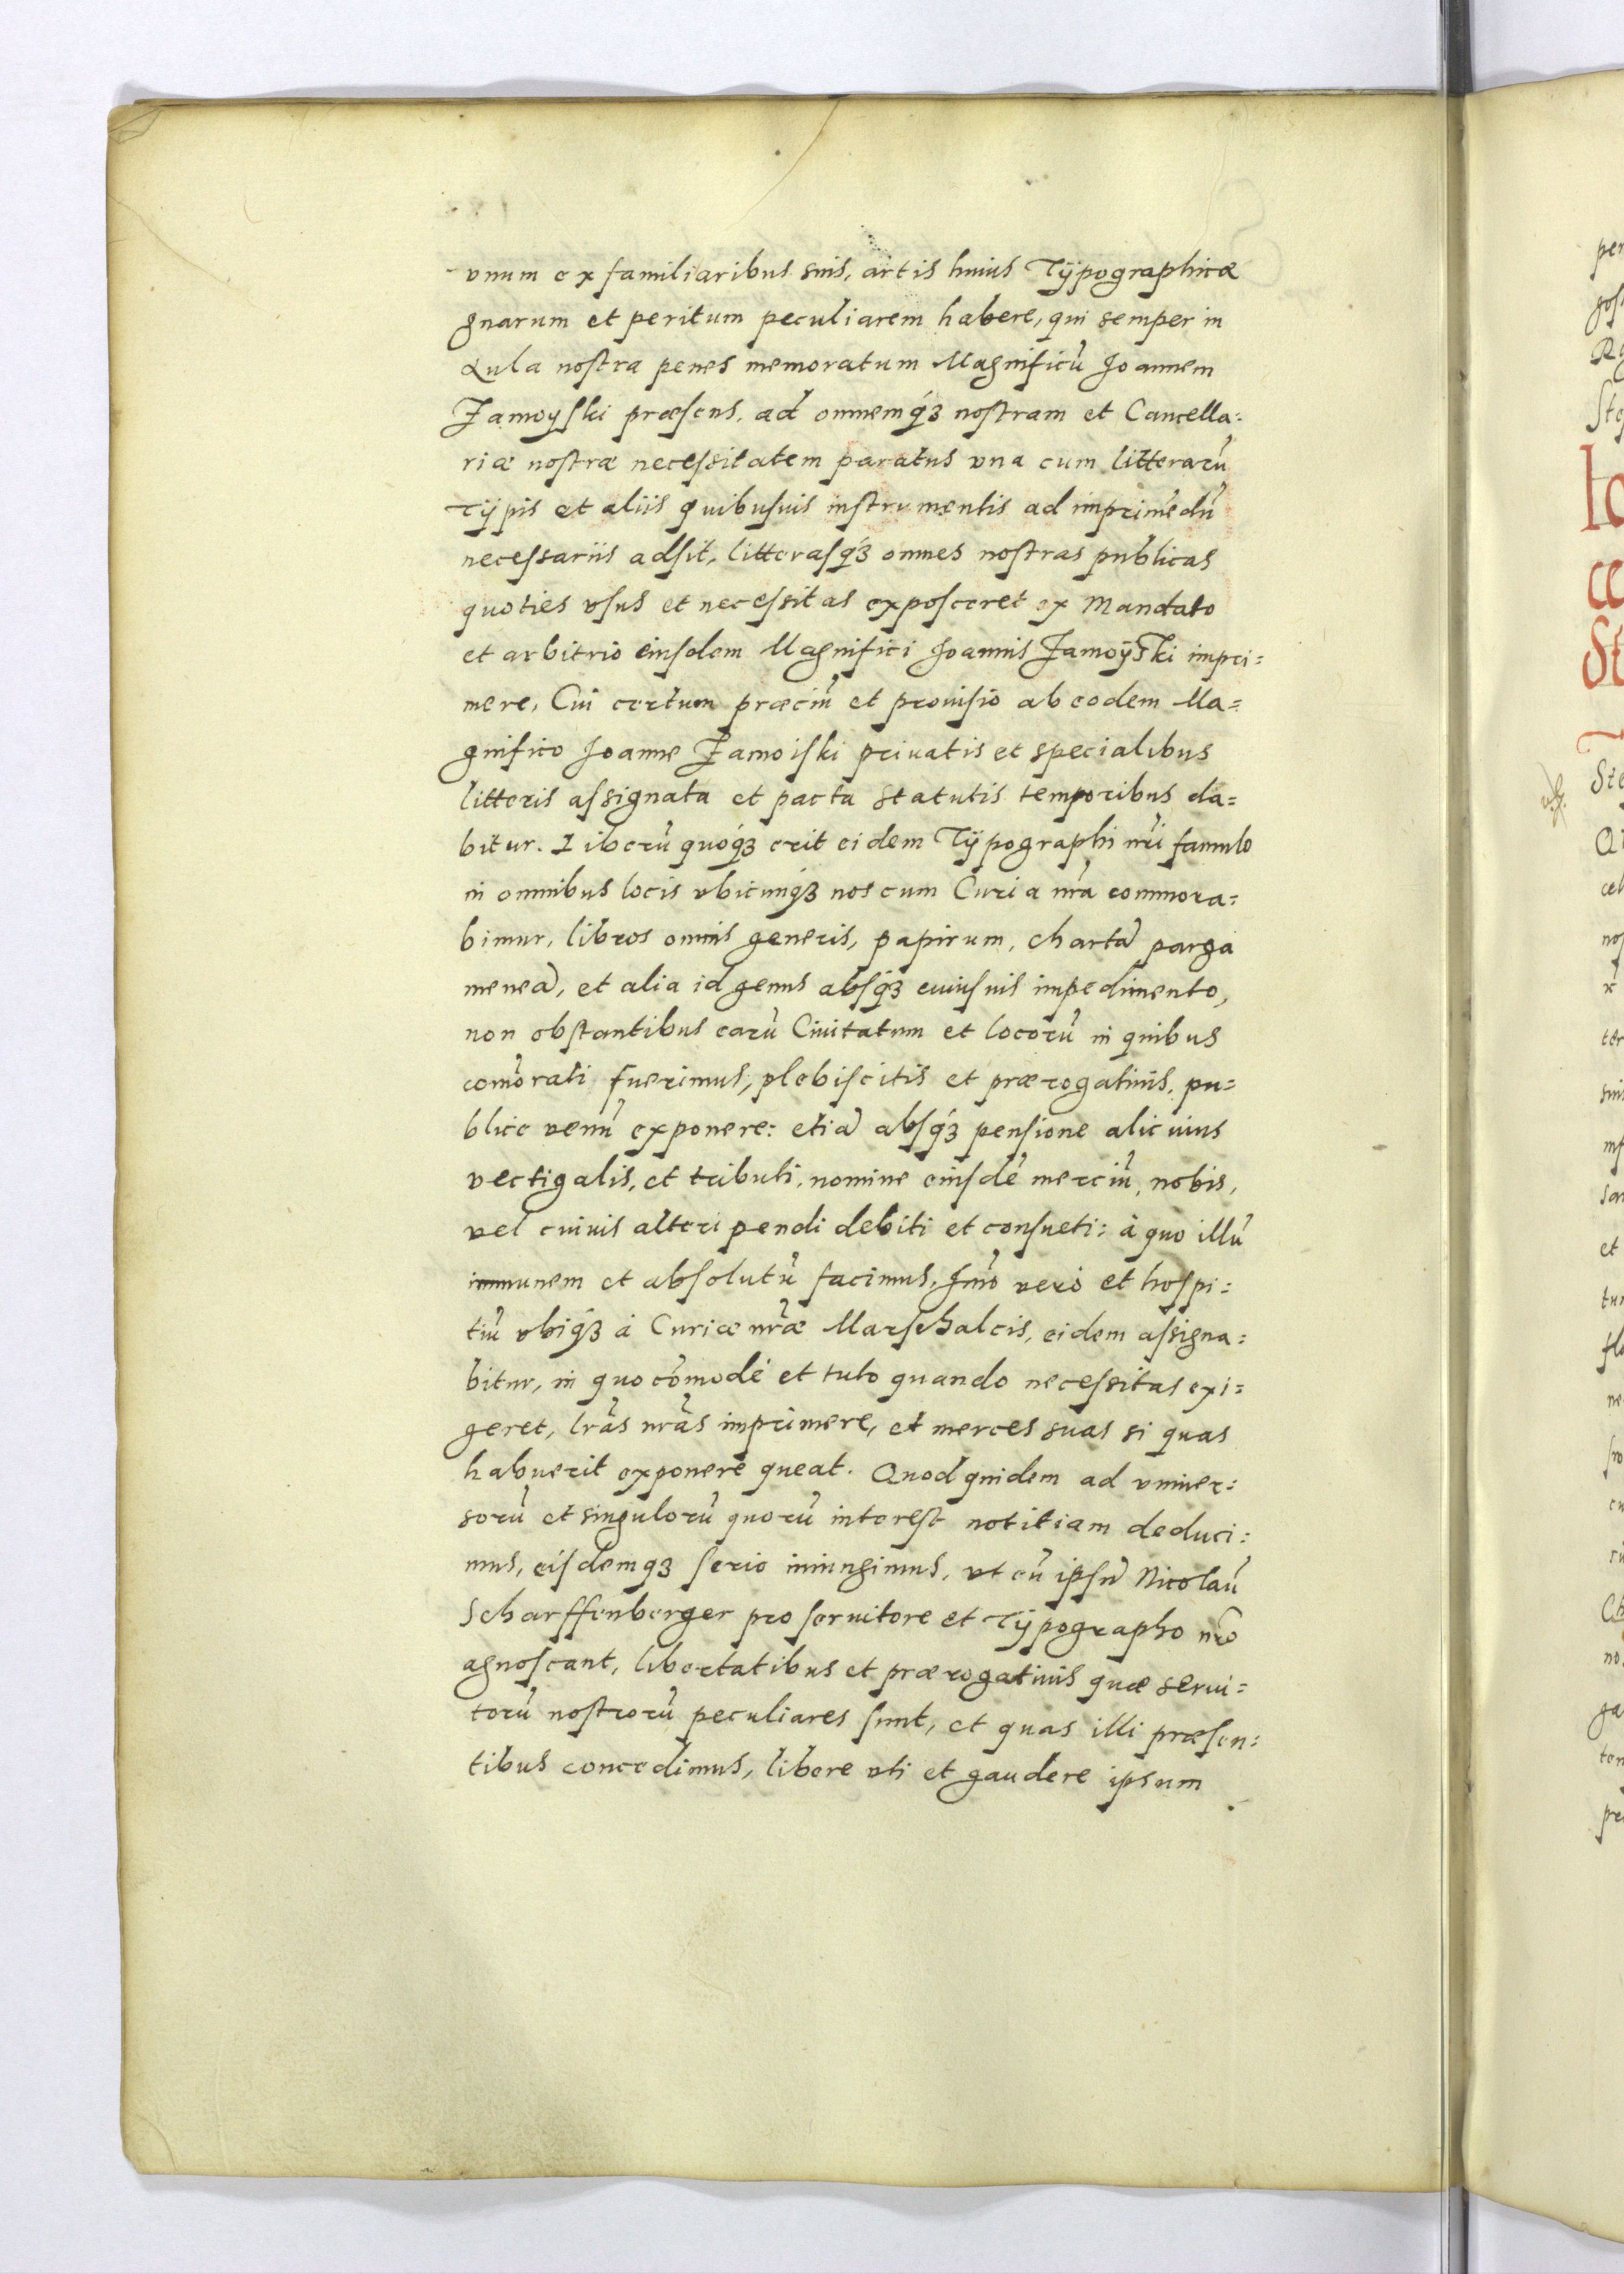 vnum ex familiaribus suis, artis huius Tÿpographicæ
gnarum et peritum peculiarem habere, qui semper in
Aula nostra penes memoratum Magnificũ Joannem
Zamoyski præsens, ad omnemq́ꝫ nostram et Cancella=
riæ nostræ necessitatem paratus vna cum litterarũ
Tÿpis et aliis quibusuis instrumentis ad imprimẽdũ
necessariis adsit, litterasq́ꝫ omnes nostras publicas
quoties vsus et necessitas exposceret ex Mandato
et arbitrio eiusdem Magnifici Joannis Zamoÿski impri=
mere, Cui certum præciũ et prouisio ab eodem Ma=
gnifico Joanne Zamoiski priuatis et specialibus
litteris assignata et pacta statutis temporibus da=
bitur. Liberũ quoq́ꝫ erit eidem Tÿpographi nr̃i famulo
in omnibus locis vbicunq́ꝫ nos cum Curia nr̃a commora=
bimur, libros omnis generis, papirum, chartã parga
meneã, et alia id genus absq́ꝫ cuiusuis impedimento,
non obstantibus earũ Ciuitatum et locorũ in quibus
com̃orati fuerimus, plebiscitis et prærogatiuis, pu=
blice venũ exponere: etiã absq́ꝫ pensione alicuius
vectigalis, et tributi, nomine eiusdẽ merciũ, nobis,
vel cuiuis alteri pendi debiti et consueti: à quo illũ
immunem et absolutũ facimus, Jmõ verò et hospi=
tiũ vbiq́ꝫ à Curiæ nr̃æ Marschalcis, eidem assigna=
bitur, in quo cõmodè et tuto quando necessitas exi=
geret, lr̃as nr̃as imprimere, et merces suas si quas
habuerit exponere queat. Quod quidem ad vniuer=
sorũ et singulorũ quorũ interest notitiam deduci=
mus, eisdemqꝫ serio iniungimus, vt eũ ipsũ Nicolaũ
Scharffenberger pro seruitore et Tÿpographo nr̃o
agnoscant, libertatibus et prærogatiuis quæ serui=
torũ nostrorũ peculiares sunt, et quas illi præsen=
tibus concedimus, libere vti et gaudere ipsum